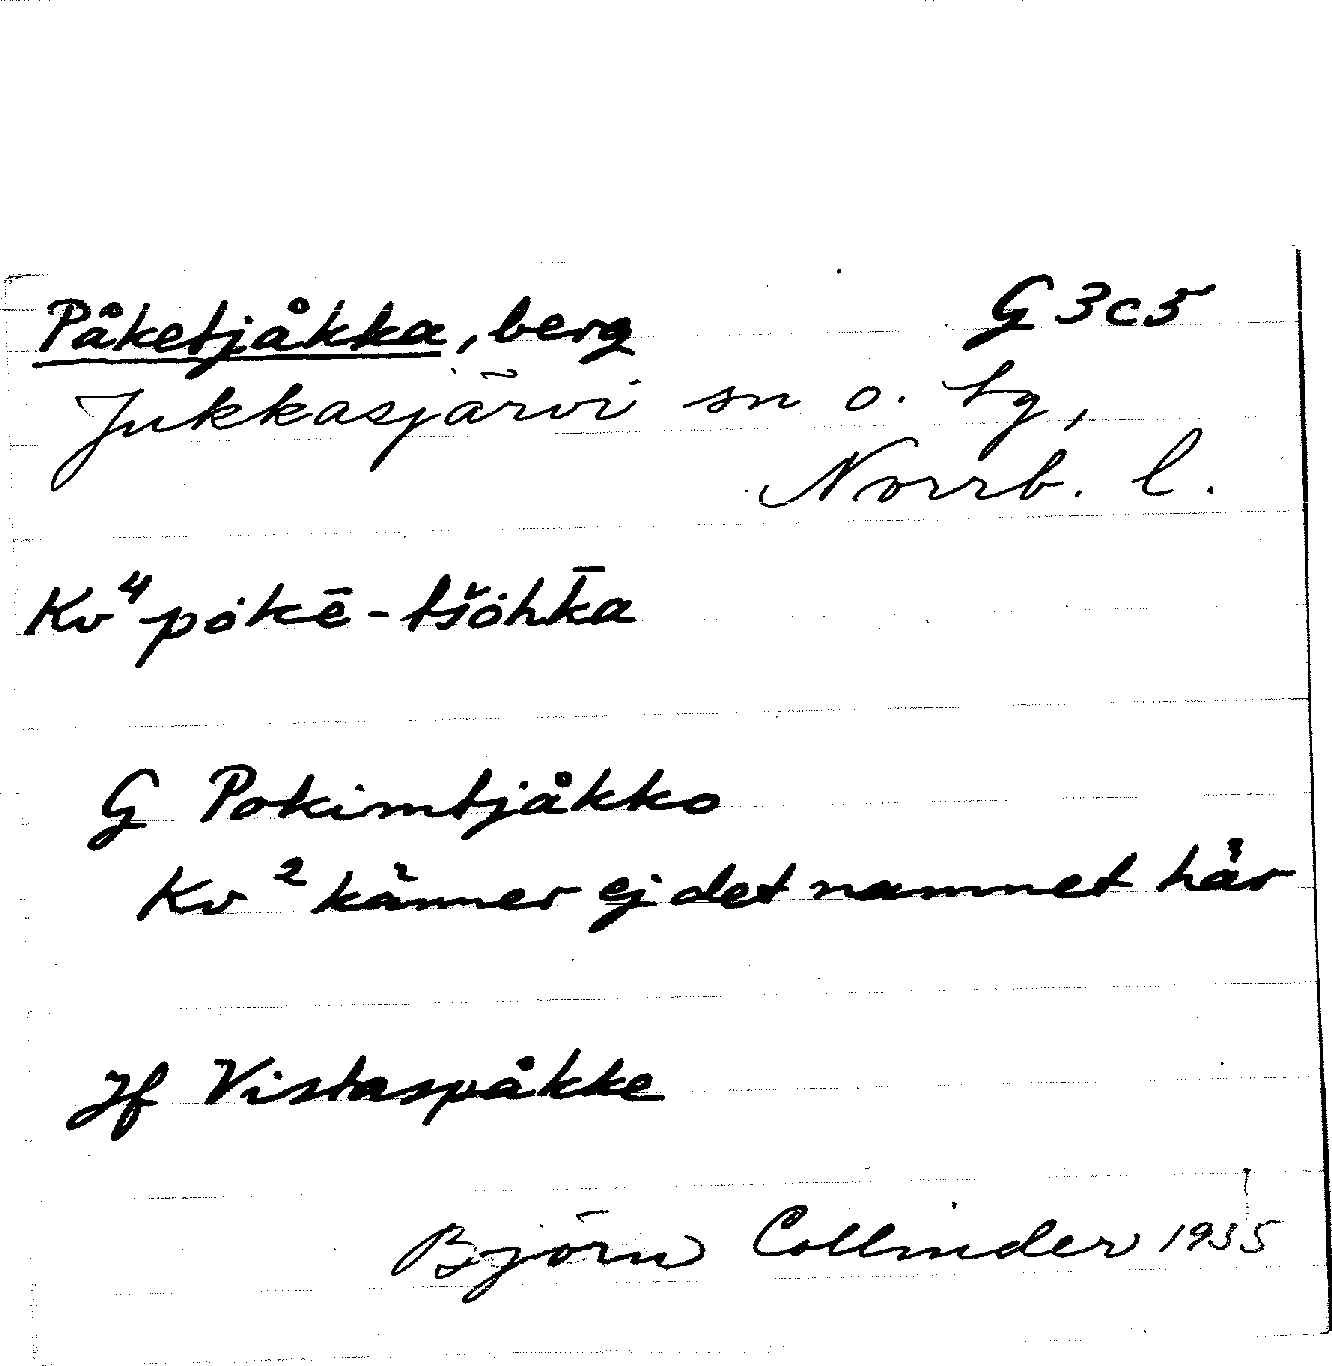 Påketjåkka, berg G 3c5
Jukkasjärvi sn o. tg,
Norrb. l.
Kv⁴ pȯkē-tšȯhk̄a
G Pokimtjåkko
Kv² känner ej det namnet här
Jf Vistaspåkke
Björn Collinder 1935